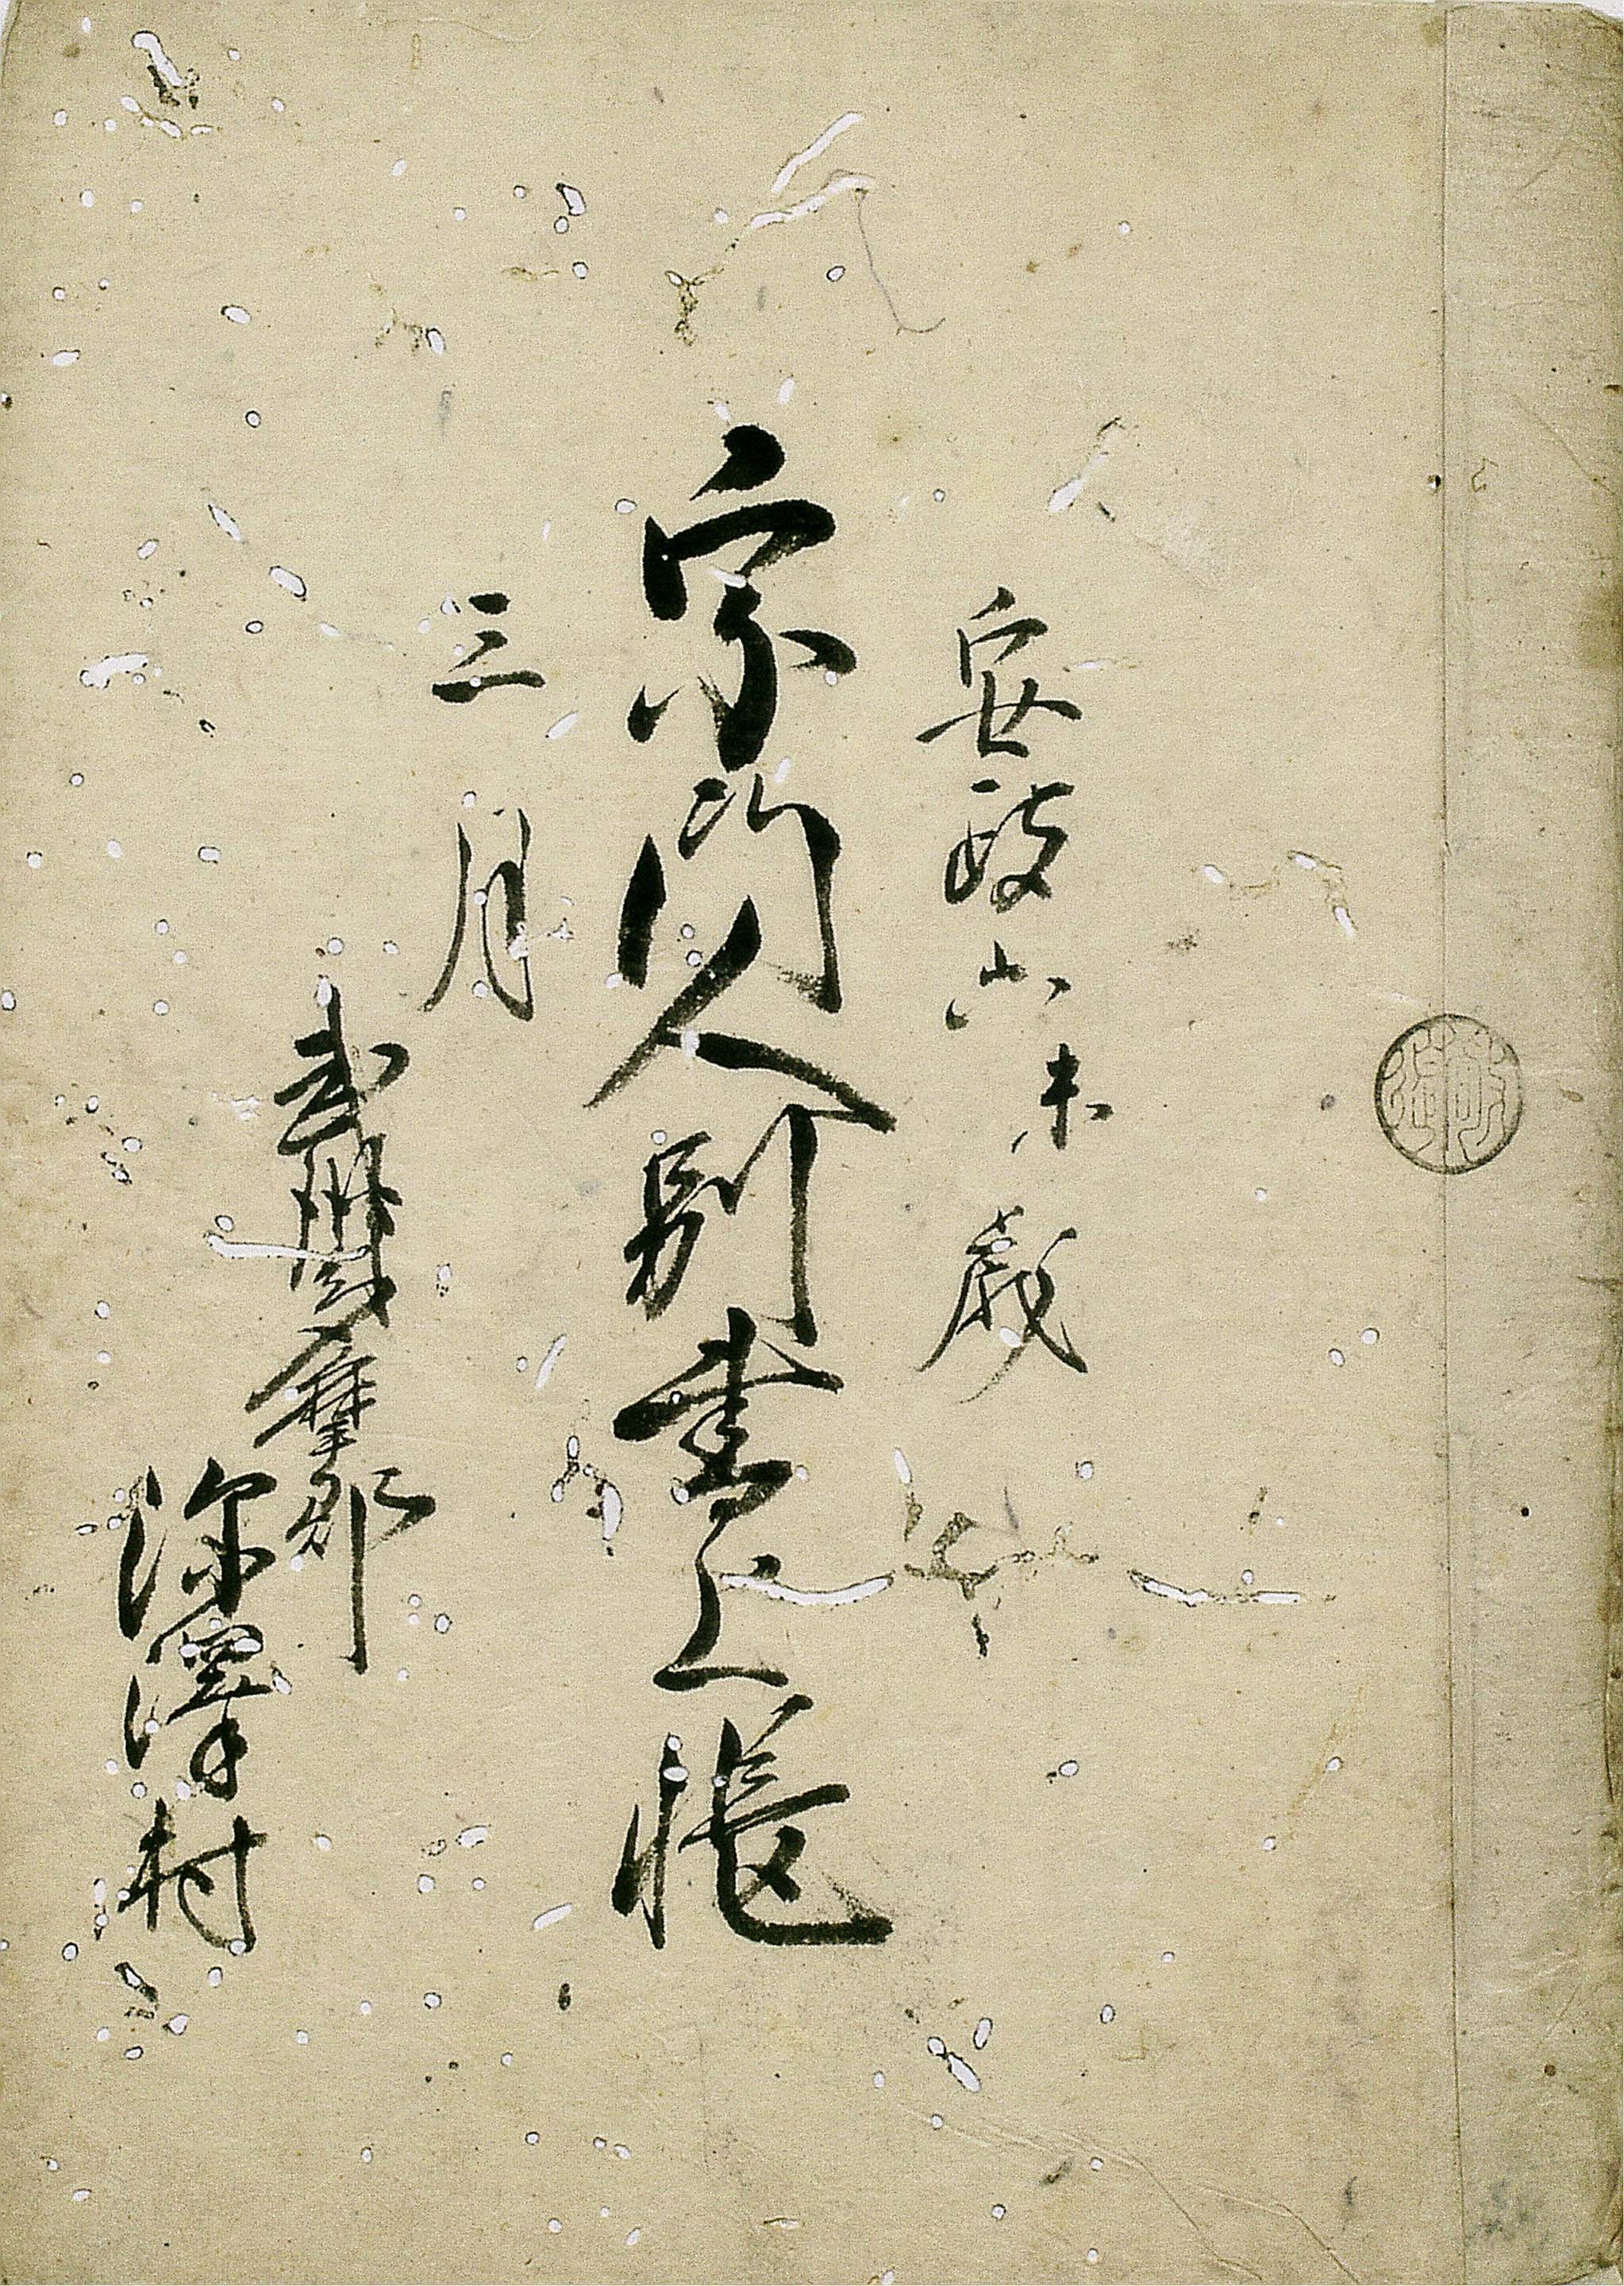 安政六未歳
宗門人別書上帳
三月
武州多摩郡
深澤村